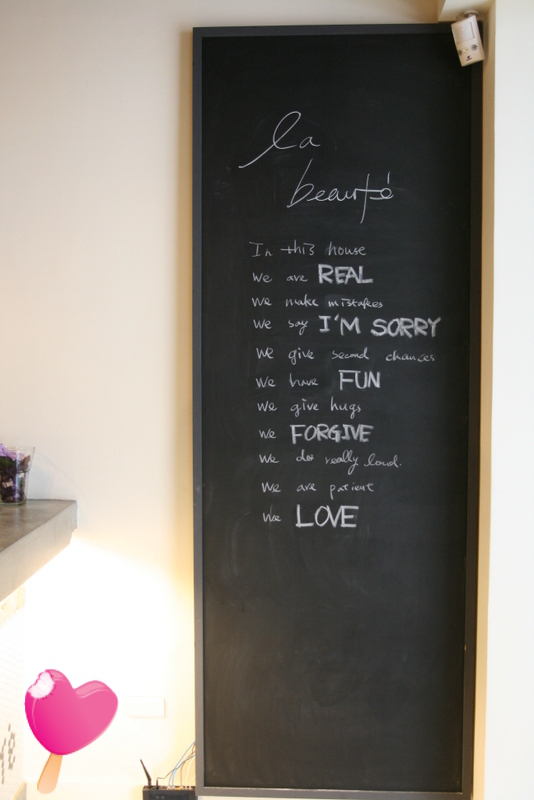 la
beauté
In this house
we are REAL
we make mistakes
we say I'M SORRY
we give second chances
we have FUN
we give hugs
we FORGIVE
we do really loud.
we are patient
we LOVE